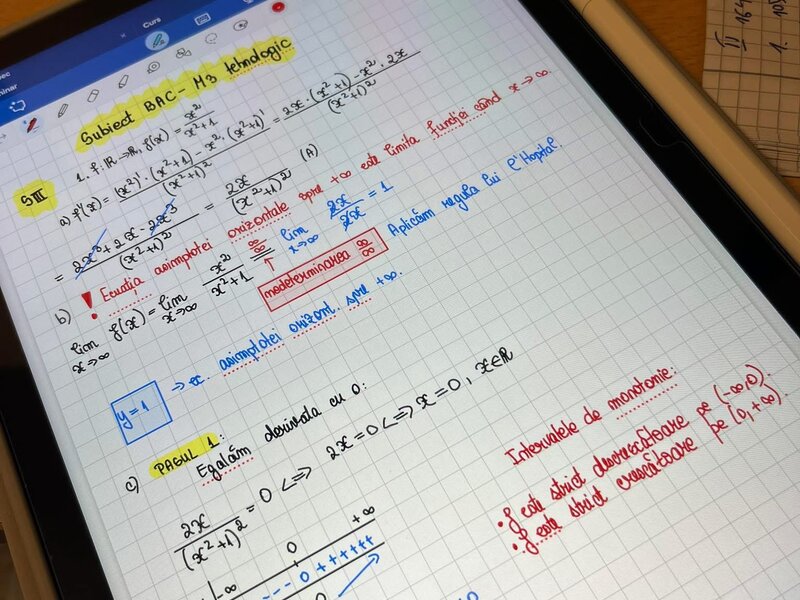 Curs
Subiect BAC - M3 tehnologic
SIII
1. f: ℝ → ℝ, f(x) = x²/(x²+1)
a) f'(x) = ((x²)' · (x²+1) - x² · (x²+1)')/(x²+1)² = (2x · (x²+1) - x² · 2x)/(x²+1)²
= (2x³ + 2x - 2x³)/(x²+1)² = 2x/(x²+1)² (A)
b) ! Ecuația asimptotei orizontale spre +∞ este limita funcției când x → ∞.
lim x→∞ f(x) = lim x→∞ x²/(x²+1) =(∞/∞) lim x→∞ 2x/2x = 1 Aplicăm regula lui l'Hopital.
nedeterminarea ∞/∞
y = 1 → ec. asimptotei orizont. spre +∞.
c) PASUL 1:
Egalăm derivata cu 0:
2x/(x²+1)² = 0 <=> 2x = 0 <=> x = 0, x ∈ ℝ
-∞ 0 +∞
- - - 0 + + + + + +
Intervalele de monotonie:
• f este strict descrescătoare pe (-∞, 0).
• f este strict crescătoare pe (0, +∞).
II
1.